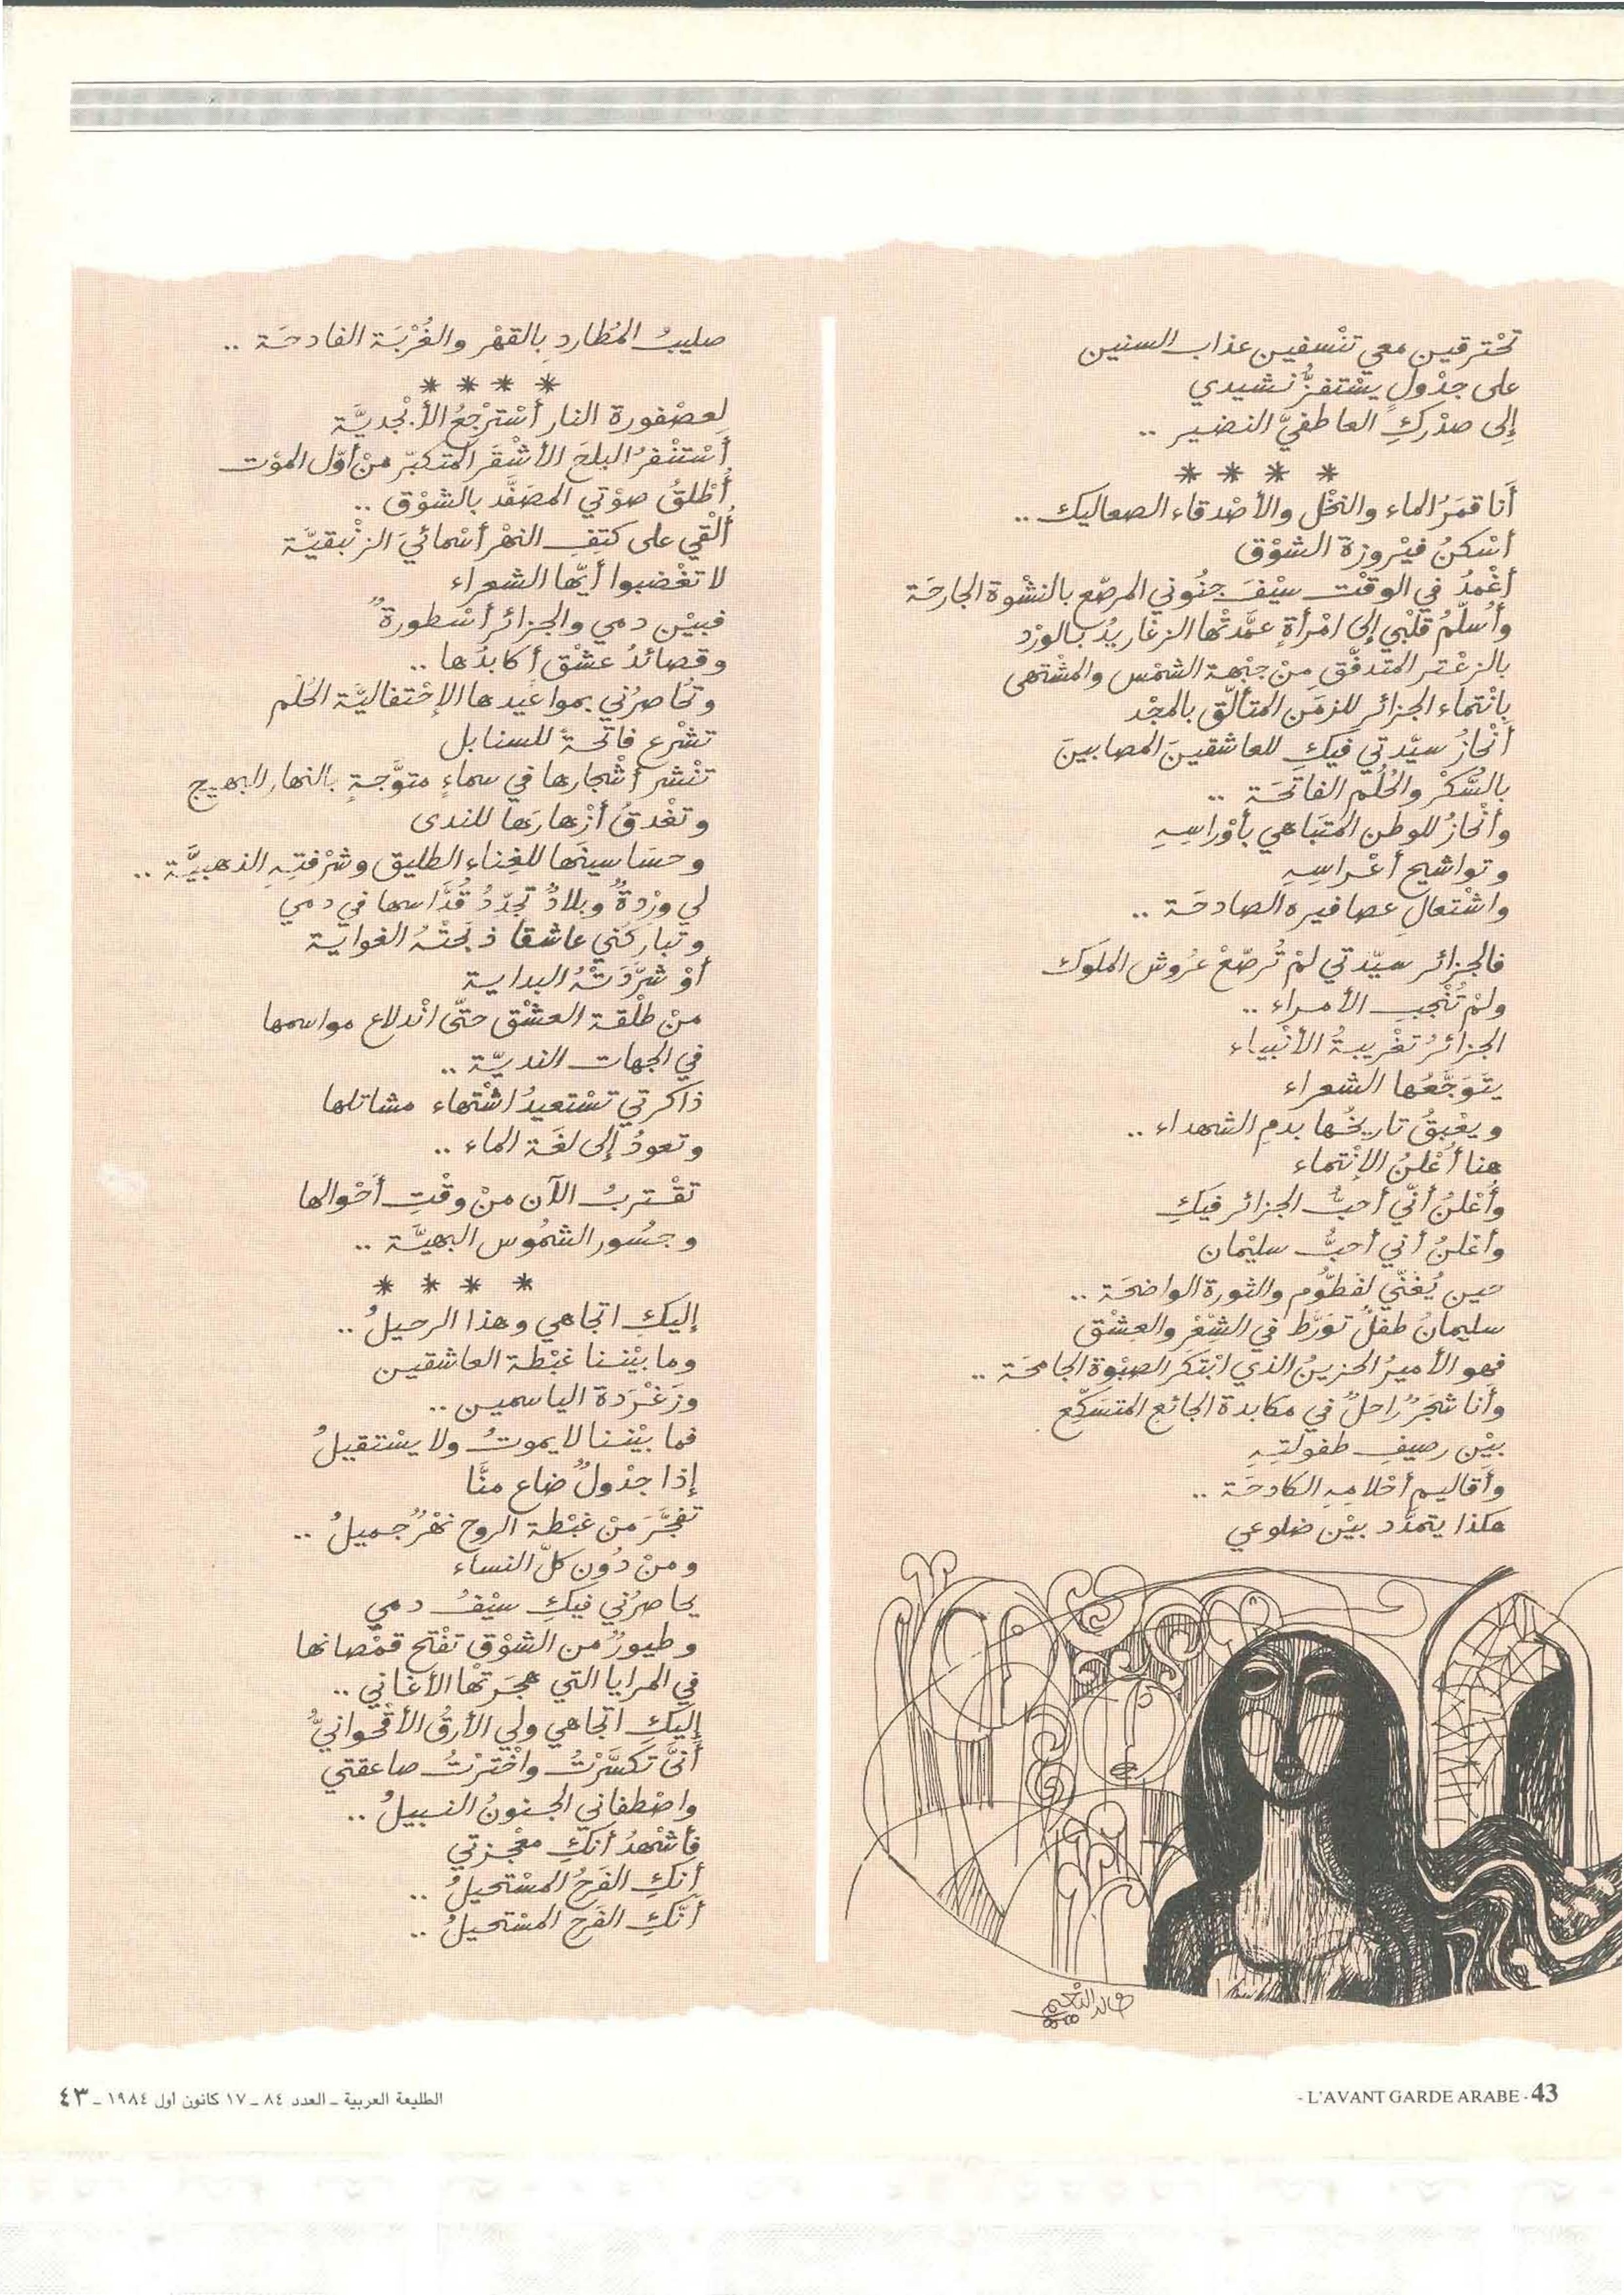 تحْترقين معي تنْسفين عذاب السنين
على جدْولٍ يسْتفزُّ نشيدي
إلى صدْركِ العاطفيّ النضير ..
* * * *
أَنا قمَرُ الماء والنخْل والأصْدقاء الصعاليك ..
أسْكنُ فيْروزة الشوْق
أغْمدُ في الوقْت سيْفَ جنُوني المرصّع بالنشْوة الجارحَة
وأُسلّمُ قلْبي إلى امْرأةٍ عمَّدتْها الزغَاريدُ بالورْد
بالزعْتر المتدفّق منْ جبْهة الشمْس والمشْتهى
بانْتماء الجزائرِ للزمَن المتألّق بالمجْد
أنْحازُ سيّدتي فيكِ للعاشقينَ المصابينَ
بالسُّكرْ والحُلم الفاتحَة ..
وأنْحازُ للوطن المتَباهي بأوْراسِهِ
وتواشيح أعْراسِهِ
واشْتعالِ عصافيره الصادحَة ..
فالجزائر سيّدتي لمْ تُرصّعْ عرُوش الملوك
ولمْ تُنْجبِ الأمراء ..
الجزائرُ تغْريبةُ الأنْبياء
يتَوجَّعُها الشعراء
ويعْبقُ تاريخُها بدمِ الشهداء ..
هنا أُعْلنُ الإنْتماء
وأُعْلنُ أنّي أحبُّ الجزائر فيكِ
وأعْلنُ أني أحبُّ سليْمان
حين يُغنّي لفَطُّوم والثورة الواضحَة ..
سليمانُ طفلٌ تورَّط في الشِّعْر والعِشْق
فهو الأميرُ الحزينُ الذي ابْتكَر الصبْوة الجامحَة ..
وأنا شجَرٌ راحلٌ في مكابدة الجائع المتسَكّع
بيْن رصيفِ طفولتِهِ
وأقاليم أحْلامِهِ الكادحَة ..
هكذا يتمدَّد بيْن ضلوعي
خالد النعيمي
صليبُ المُطارد بالقهْر والغُرْبَة الفادحَة ..
* * * *
لعصْفورة النار أسْترْجعُ الأبْجديَّة
أسْتنْفرُ البلحَ الأشْقَر المتكبّر منْ أوّل الموْت
أُطْلقُ صوْتي المصَفَّد بالشوْق ..
أُلْقي على كتفِ النهْر أسْمائيَ الزئْبقيّة
لا تغْضبوا أيّها الشعراء
فبيْن دمي والجزائر أسْطورةٌ
وقصائدُ عشْق أكابدُها ..
وتحُاصرُني بمواعيدها الإحْتفاليَّة الحُلْم
تشْرع فاتحةً للسنابل
تنْشر أشْجارها في سماءٍ متوَّجةٍ بالنهار البهيج
وتغْدقُ أزْهارَها للندى
وحسَاسينَها للغِناء الطليق وشرْفتِهِ الذهبيَّة ..
لي ورْدةٌ وبلادٌ تجدّدُ قُدَّاسها في دمي
وتباركني عاشقا ذبحَتْهُ الغواية
أوْ شرَّدَتْهُ البداية
منْ طلْقة العشْق حتّى انْدلاع مواسمها
في الجهات النديّة ..
ذاكرتي تسْتعيدُ اشْتهاء مشاتلها
وتعودُ إلى لغَة الماء ..
تقْتربُ الآن منْ وقْتِ أحْوالها
وجسُور الشمُوس البهيَّة ..
* * * *
إليكِ اتّجاهي وهذا الرحيلُ ..
وما بيْننا غبْطة العاشقين
وزغْردة الياسمين ..
فما بيْننا لا يموتُ ولا يسْتقيلُ
إذا جدْولٌ ضاع منَّا
تفجَّرَ منْ غبْطة الروح نهْرٌ جميلُ ..
ومنْ دُون كلّ النساء
يحاصرُني فيكِ سيْفُ دمي
وطيورٌ من الشوْق تفْتح قمْصانها
في المرايا التي هجرَتْها الأغاني ..
إليكِ اتّجاهي ولي الأرقُ الأقْحوانيُّ
أنىَّ تكسَّرْتُ واخْترْتُ صاعقتي
واصْطفاني الجنونُ النبيلُ ..
فأشْهدُ أنكِ معْجزتي
أنكِ الفَرحُ المسْتحيلُ ..
أنَّكِ الفَرح المسْتحيلُ ..
الطليعة العربية ـ العدد ٨٤ ـ ١٧ كانون اول ١٩٨٤ ـ ٤٣
- L'AVANT GARDE ARABE - 43